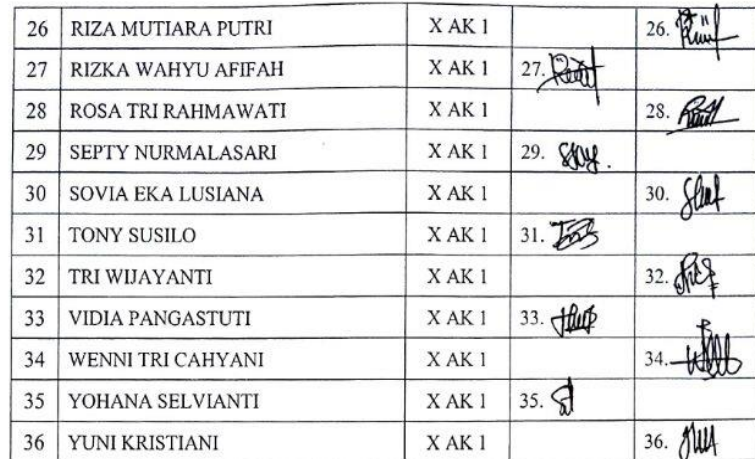 26 RIZA MUTIARA PUTRI X AK 1 26.
27 RIZKA WAHYU AFIFAH X AK 1 27.
28 ROSA TRI RAHMAWATI X AK 1 28.
29 SEPTY NURMALASARI X AK 1 29.
30 SOVIA EKA LUSIANA X AK 1 30.
31 TONY SUSILO X AK 1 31.
32 TRI WIJAYANTI X AK 1 32.
33 VIDIA PANGASTUTI X AK 1 33.
34 WENNI TRI CAHYANI X AK 1 34.
35 YOHANA SELVIANTI X AK 1 35.
36 YUNI KRISTIANI X AK 1 36.